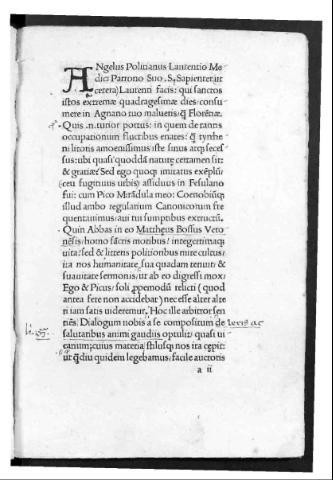 ANgelus Politianus Laurentio Me
dici Patrono Suo .S. Sapienter (ut
cetera) Laurenti facis: qui sanctos
istos extremæ quadragesimæ dies: consu
mere in Agnano tuo malueris: q̃ Florẽtiæ.
Quis .n. tutior portus: in quem de tantis
occupationum fluctibus enates: q̃ tyrrhe
ni litoris amoenissimus iste sinus atq; seces
sus: ubi quasi quoddã naturę certamen sit:
& gratiæ: Sed ego quoq; imitatus exẽplũ
(ceu fugitiuus urbis) assiduus in Fesulano
fui: cum Pico Mirãdula meo: Coenobiũq;
illud ambo regularium Canonicorum fre
quentauimus: aui tui sumptibus extructũ.
Quin Abbas in eo Mattheus Bossus Vero
nẽsis: homo sãctis moribus: integerrimaq;
uita: sed & litteris politioribus mire cultus: i
ta nos humanitate sua quadam retinuit &
suauitate sermonis: ut ab eo digressi mox:
Ego & Picus: soli ꝓpemodũ relicti (quod
antea fere non accidebat) nec esse alter alte
ri iam satis uideremur. Hoc ille arbitror sen
tiẽs: Dialogum nobis a se compositum de ueris ac
salutaribus animi gaudiis optulit: quasi ui
carium: cuius materia stilusq; nos ita cępit:
ut q̃diu quidem legebamus: facile auctoris
a ii